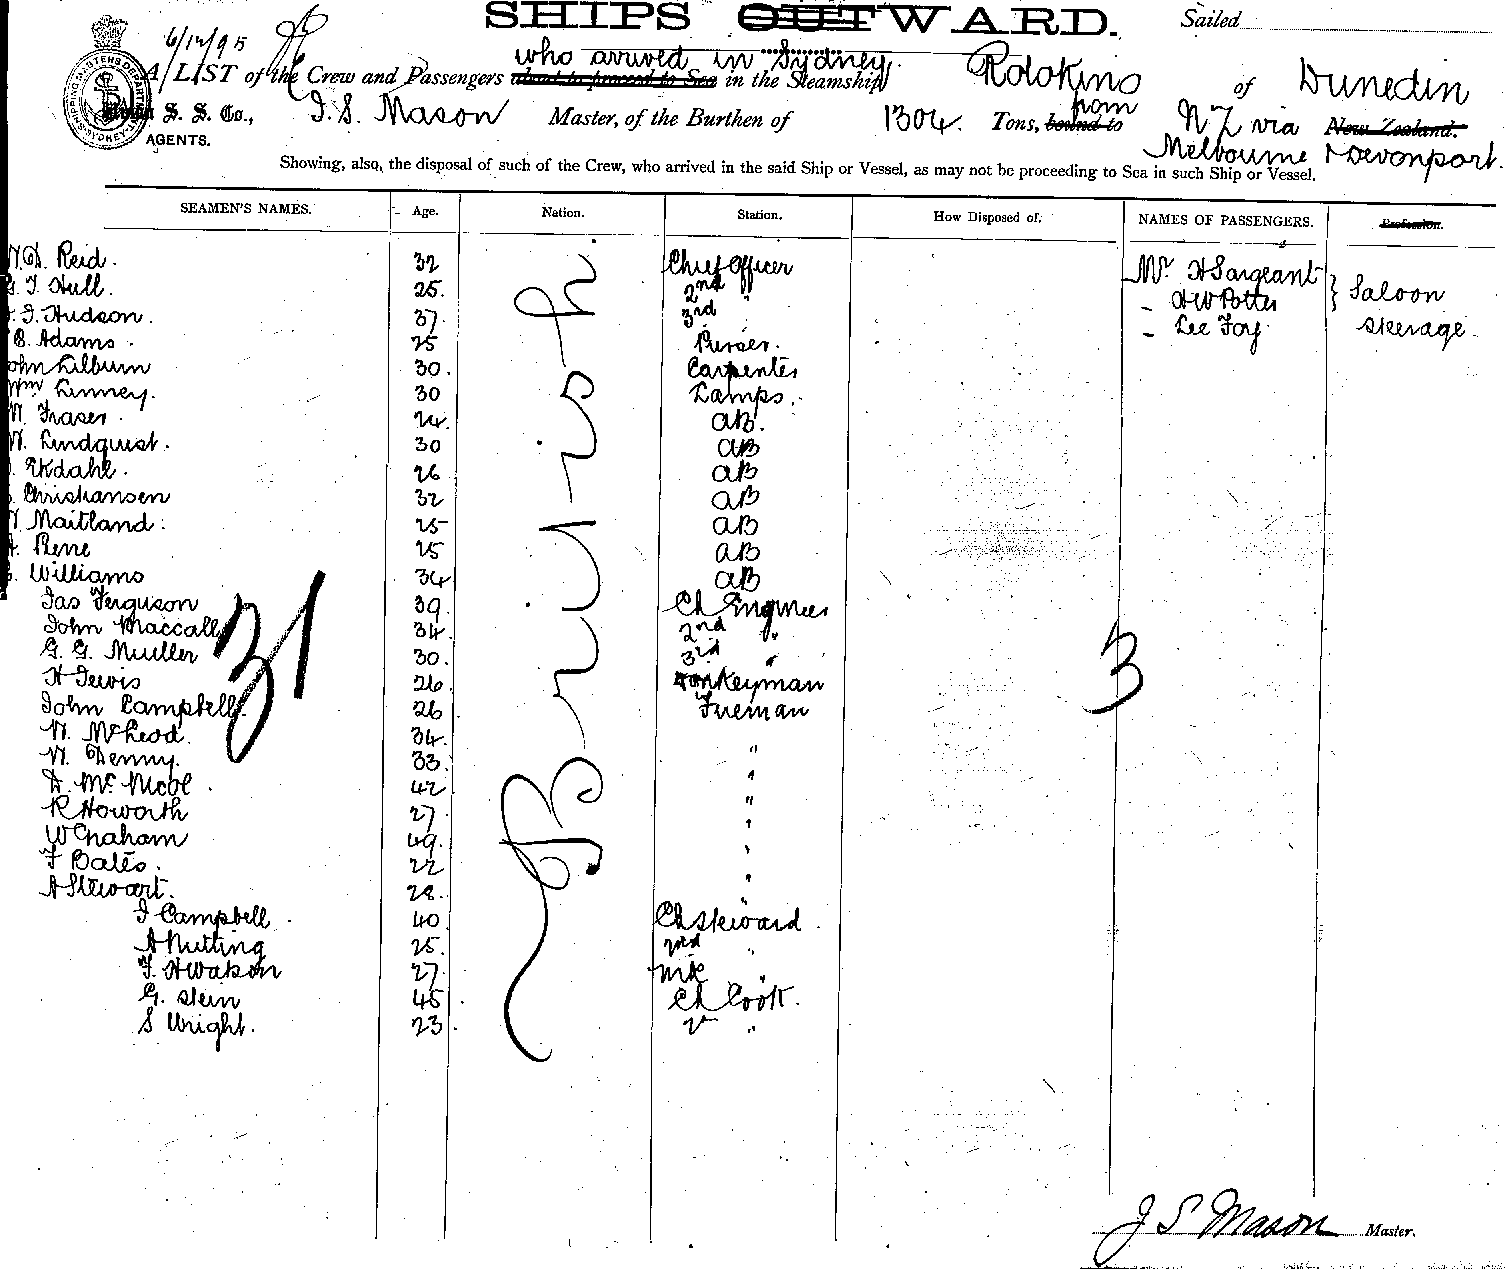 SHIPS OUTWARD.
Sailed
6/12/95
who arrived in Sydney.
A LIST of the Crew and Passengers about to proceed to Sea in the Steamship Rotokino of Dunedin
from
S. S. Co., J. S. Mason Master, of the Burthen of 1304. Tons, bound to N Z via New Zealand.
AGENTS.
Melbourne & Devonport.
Showing, also, the disposal of such of the Crew, who arrived in the said Ship or Vessel, as may not be proceeding to Sea in such Ship or Vessel.
SEAMEN'S NAMES. Age. Nation. Station. How Disposed of. NAMES OF PASSENGERS. Profession.
Reid. 32 Chief Officer Mr H Sargeant
T Hull. 25. 2nd " - H W Potter } Saloon
J. Hudson. 37 3rd - Lee Foy. Steerage.
B. Adams. 25 Purser.
John Lilburn 30. Carpenter
Wm Linney. 30 Lamps.
Fraser. 24. AB.
Lindquist. 30 AB
Ekdahl. 26 AB
Christiansen 32 AB
Maitland. 25 AB
Rene 25 AB
Williams 34 AB
Jas Ferguson 39. Ch Engineer
John Maccall 34 2nd "
G. G. Muller 30. 3rd "
H Lewis 26 Donkeyman
John Campbell. 26 Fireman
N. McLeod. 34. "
N. Denny. 33. "
D. McNicol. 42 "
R Howorth 27 "
W Graham 49. "
F Bates. 22 "
A Stewart. 28. "
J Campbell 40 Ch Steward
A Nutting 25. 2nd "
F. H Watson 27
G. Stein 45 Ch Cook.
S Wright. 23 2nd "
British
31
3
J S Mason Master.